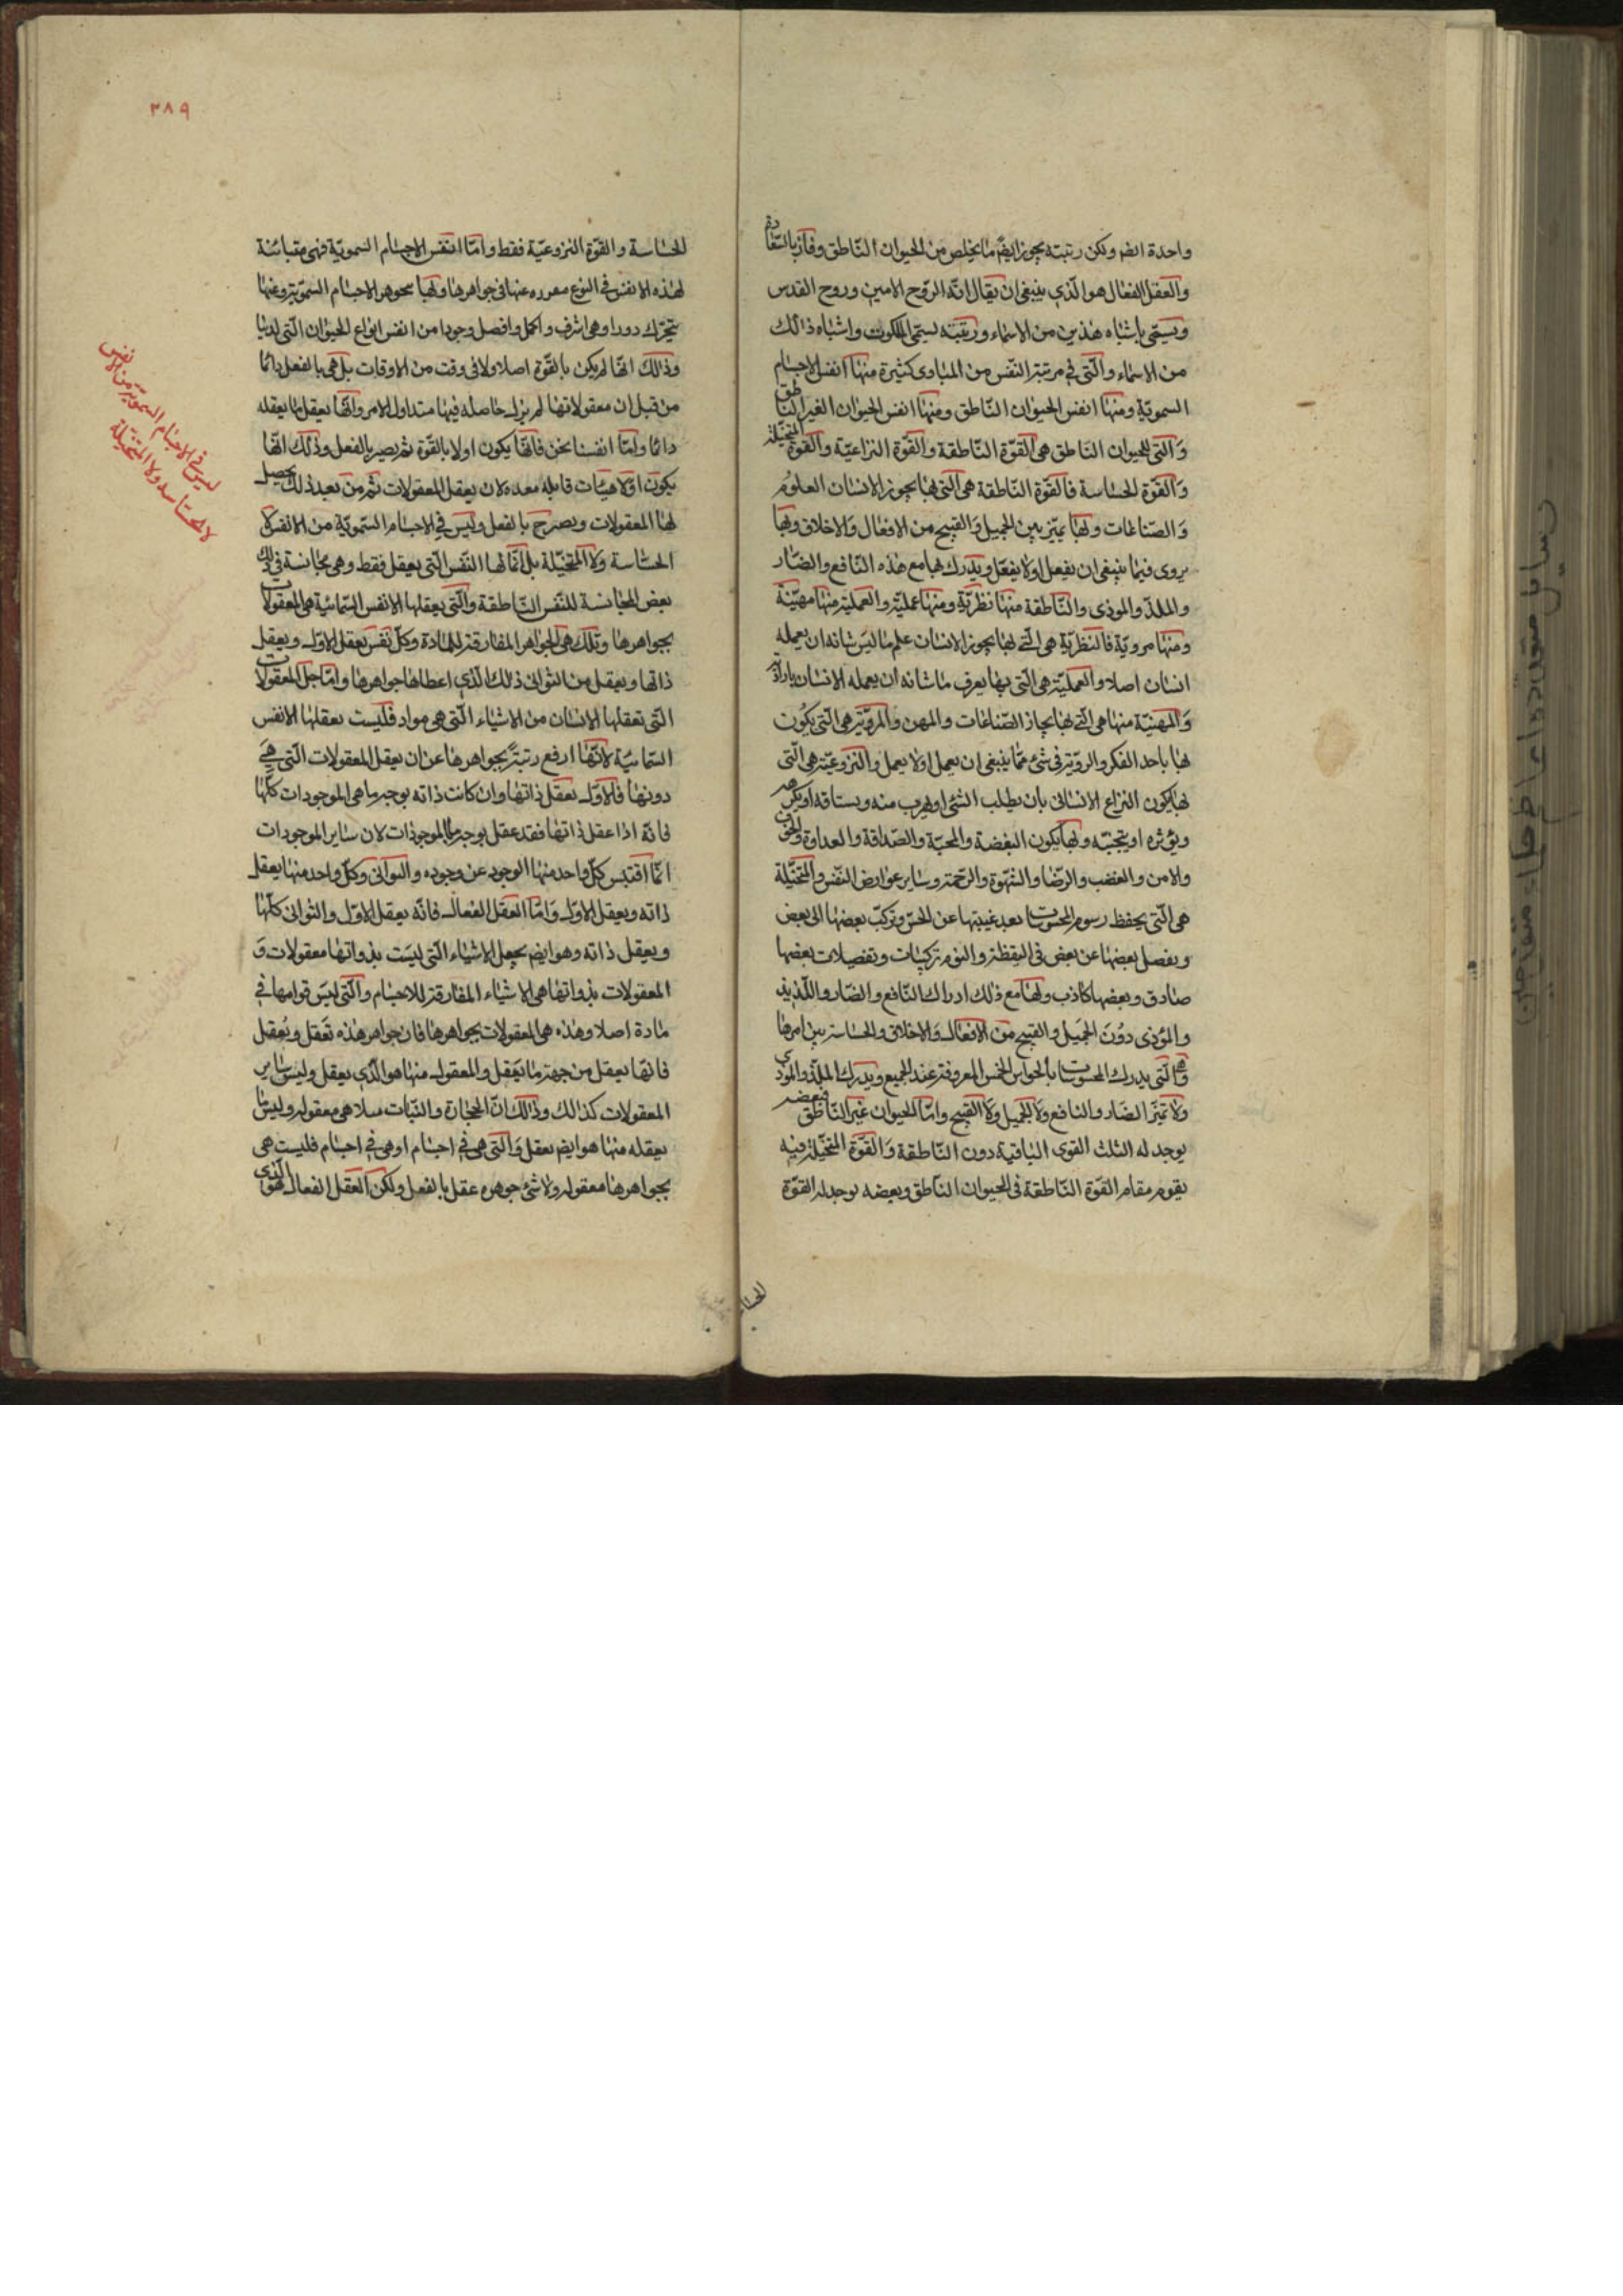 واحدة ايضم ولكن رتبته يحوز ايضم ما يخلص من الحيوان الناطق وفاز بالسعادة
والعقل الفعال هو الذي ينبغى ان يقال انه الروح الامين وروح القدس
ويسمى باشباه هذين من الاسماء ورتبته يسمى الملكوت واشباه ذالك
من الاسماء والتى فى مرتبة النفس من المبادى كثيرة منها انفس الاجسام
السموية ومنها انفس الحيوان الناطق ومنها انفس الحيوان الغير الناطق
والتى للحيوان الناطق هى القوة الناطقة والقوة النزاعية والقوة المتخيلة
والقوة الحساسة فالقوة الناطقة هى التى بها يحوز الانسان العلوم
والصناعات وبها يميز بين الجميل والقبيح من الافعال والاخلاق وبها
يروى فيما ينبغى ان يفعل او لا يفعل ويدرك بها مع هذه النافع والضار
والملذ والموذى والناطقة منها نظرية ومنها عملية والعملية منها مهنية
ومنها مروية فالنظرية هى التى بها يحوز الانسان علم ما ليس شانه ان يعمله
انسان اصلا والعملية هى التى بها يعرف ما شانه ان يعمله الانسان بارادة
والمهنية منها هى التى بها يحاز الصناعات والمهن والمروية هى التى يكون
بها باحد الفكر والروية فى شئ مما ينبغى ان يعمل او لا يعمل والنزوعية هى التى
بها يكون النزاع الانسانى بان يطلب الشئ او يهرب منه ويستاقه او يكرهه
ويؤثره او يتجنبه وبها يكون البغضة والمحبة والصداقة والعداوة والخوف
والامن والغضب والرضا والشهوة والرحمة وساير عوارض النفس والمتخيلة
هى التى يحفظ رسوم المحسوسات بعد غيبتها عن الحس وتركب بعضها الى بعض
ويفصل بعضها عن بعض فى اليقظة والنوم تركيبات وتفصيلات بعضها
صادق وبعضها كاذب ولها مع ذلك ادراك النافع والضار واللذيذ
والمؤذى دون الجميل والقبيح من الافعال والاخلاق والحساسة بين امرها
وهى التى يدرك المحسوسات بالحواس الخمس المعروفة عند الجميع ويدرك الملذ والموذى
ولا تميز الضار والنافع ولا الجميل ولا القبيح واما الحيوان غير الناطق فبعضه
يوجد له الثلث القوى الباقية دون الناطقة والقوة المتخيلة فيه
يقوم مقام القوة الناطقة فى الحيوان الناطق وبعضه يوجد له القوة
الحساسة
٣٨٩
الحساسة والقوة النزوعية فقط واما انفس الاجسام السموية فهى متباينة
لهذه الانفس فى النوع مفرده عنها فى جواهرها وبها تجوهر الاجسام السموية وعنها
يتحرك دورا وهى اشرف واكمل وافضل وجودا من انفس انواع الحيوان التى لدينا
وذالك انها لم يكن بالقوة اصلا ولا فى وقت من الاوقات بل هى بالفعل دائما
من قبل ان معقولاتها لم يزل حاصله فيها منذ اول الامر وانها يعقل ما يعقله
دائما واما انفسنا نحن فانها يكون اولا بالقوة ثم يصير بالفعل وذلك انها
يكون اولا هيئات قابلة معده لان يعقل المعقولات ثم من بعد ذلك يحصل
لها المعقولات ويصير ح بالفعل وليس فى الاجسام السموية من الانفس لا
الحساسة ولا المتخيلة بل انما لها النفس التى يعقل فقط وهى مجانسة فى ذلك
بعض المجانسة للنفس الناطقة والتى يعقلها الانفس السمائية هى المعقولات
بجواهرها وتلك هى الجواهر المفارقة للمادة وكل نفس يعقل الاول ويعقل
ذاتها ويعقل من الثوانى ذلك الذى اعطاها جواهرها واما جل المعقولات
التى تعقلها الانسان من الاشياء التى هى مواد فليست يعقلها الانفس
السمائية لانها ارفع رتبة بجواهرها عن ان يعقل المعقولات التى هى
دونها فالاول يعقل ذاتها وان كانت ذاته بوجه ما هى الموجودات كلها
فانه اذا عقل ذاتها فقد عقل بوجه ما الموجودات لان ساير الموجودات
انما اقتبس كل واحد منها الوجود عن وجوده والثوانى وكل واحد منها يعقل
ذاته ويعقل الاول واما العقل الفعال فانه يعقل الاول والثوانى كلها
ويعقل ذاته وهو ايضم يجعل الاشياء التى ليست بذواتها معقولات و
المعقولات بذواتها هى الاشياء المفارقة للاجسام والتى ليس قوامها فى
مادة اصلا وهذه هى المعقولات بجواهرها فان جواهر هذه تعقل ويعقل
فانها يعقل من جهة ما يعقل والمعقول منها هو الذى يعقل وليس ساير
المعقولات كذالك وذالك ان الحجارة والنبات مثلا هى معقولة وليس ما
يعقله منها هو ايضم يعقل والتى هى فى اجسام او هى فى اجسام فليست هى
بجواهرها معقولة ولا شئ جوهره عقل بالفعل ولكن العقل الفعال هو الذى
ليس فى الاجسام السموية من الانفس
لا الحساسه ولا المتخيلة